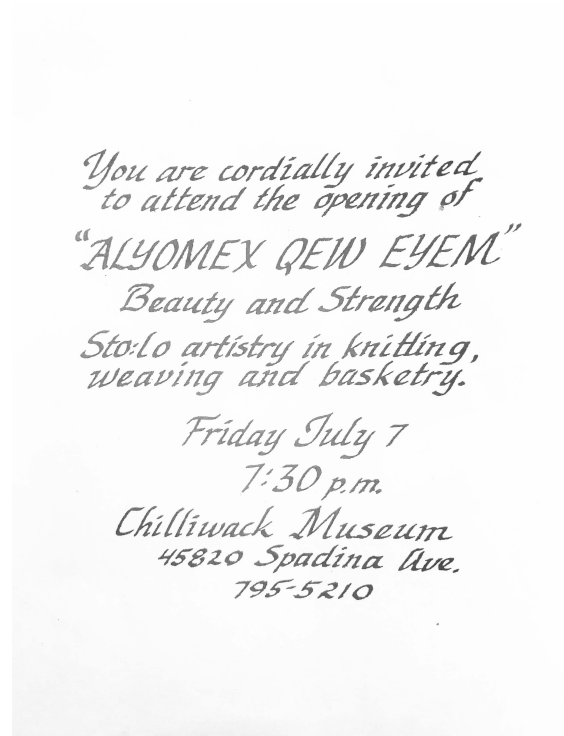 You are cordially invited
to attend the opening of
"ALYOMEX QEW EYEM"
Beauty and Strength
Sto:lo artistry in knitting,
weaving and basketry.
Friday July 7
7:30 p.m.
Chilliwack Museum
45820 Spadina Ave.
795-5210